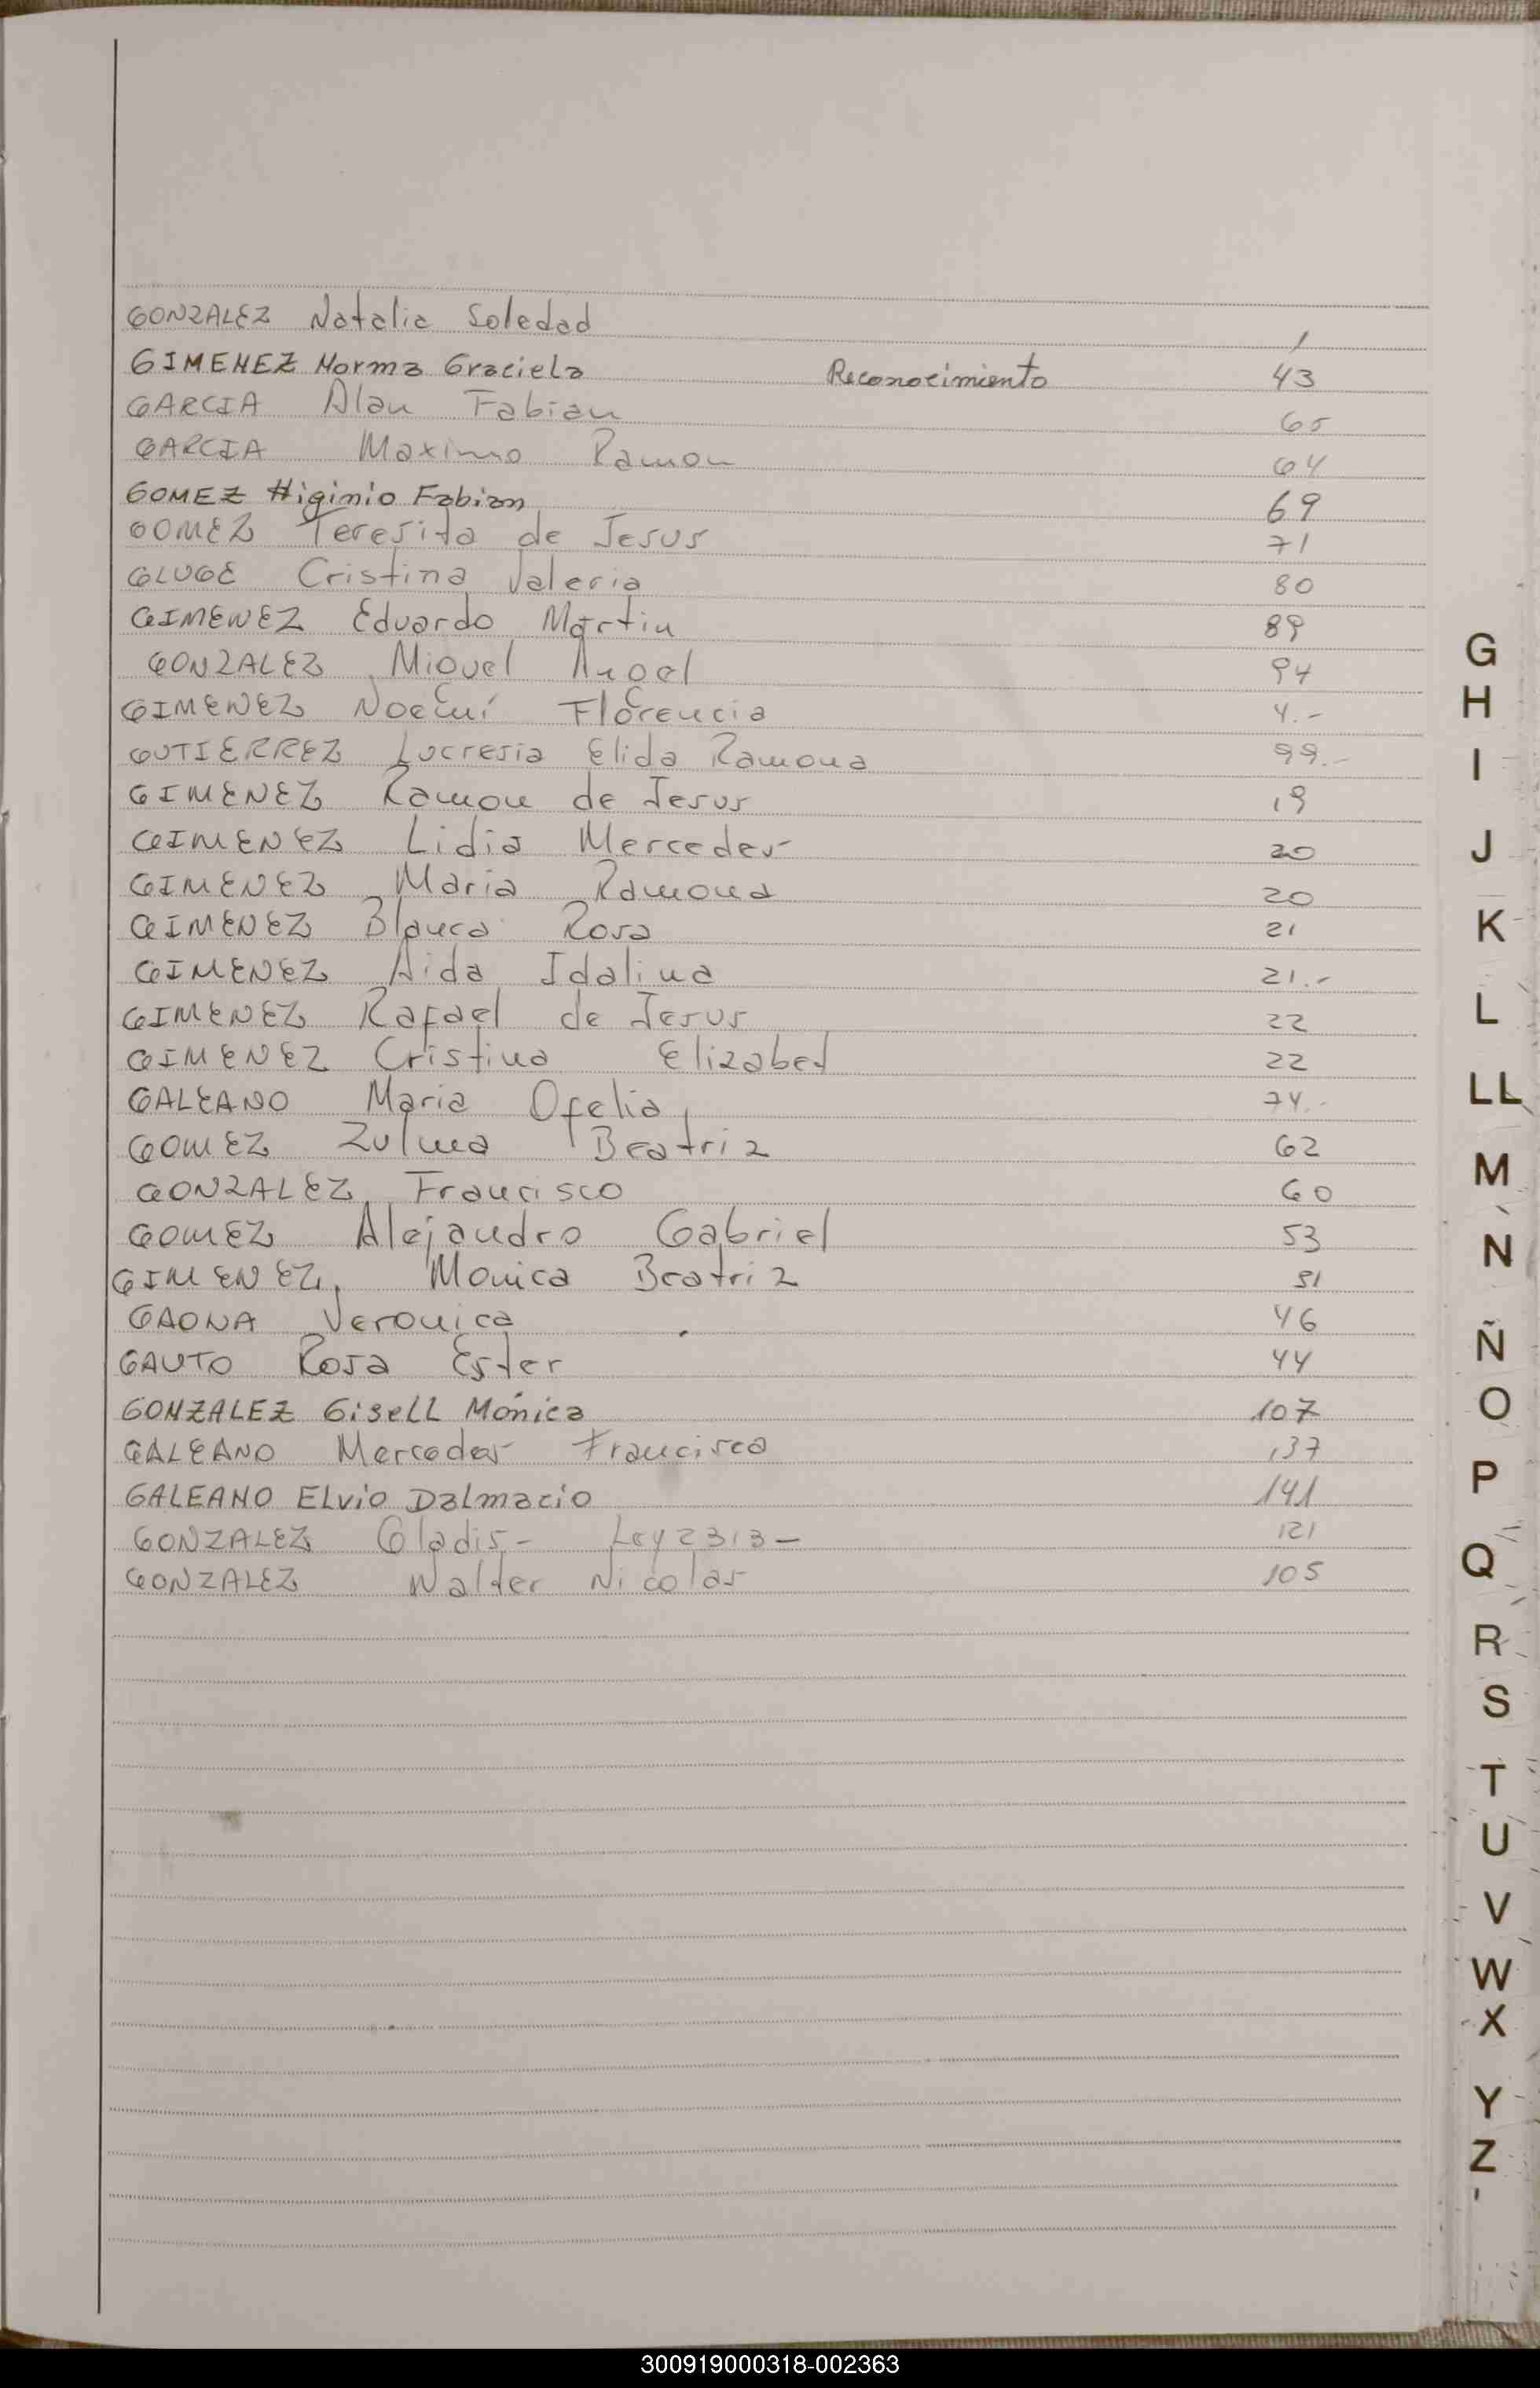 GONZALEZ Natalia Soledad 1
GIMENEZ Norma Graciela Reconocimiento 43
GARCIA Alan Fabian 65
GARCIA Maximo Ramon 64
GOMEZ Higinio Fabian 69
GOMEZ Teresita de Jesus 71
GLUGE Cristina Valeria 80
GIMENEZ Eduardo Martin 89
GONZALEZ Miguel Angel 94
GIMENEZ Noemí Florencia 4.-
GUTIERREZ Lucresia Elida Ramona 99.-
GIMENEZ Ramon de Jesus 19
GIMENEZ Lidia Mercedes 20
GIMENEZ Maria Ramona 20
GIMENEZ Blanca Rosa 21
GIMENEZ Aida Idalina 21.-
GIMENEZ Rafael de Jesus 22
GIMENEZ Cristina Elizabet 22
GALEANO Maria Ofelia 74.-
GOMEZ Zulma Beatriz 62
GONZALEZ, Francisco 60
GOMEZ Alejandro Gabriel 53
GIMENEZ, Monica Beatriz 51
GAONA Veronica 46
GAUTO Rosa Ester 44
GONZALEZ Gisell Mónica 107
GALEANO Mercedes Francisca 137
GALEANO Elvio Dalmacio 141
GONZALEZ Gladis- Ley 2313- 121
GONZALEZ Walter Nicolas 105
G
H
I
J
K
L
LL
M
N
Ñ
O
P
Q
R
S
T
U
V
W
X
Y
Z
300919000318-002363